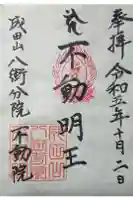 奉拝 令和五年十月二日
不動明王
成田山八街分院
不動院